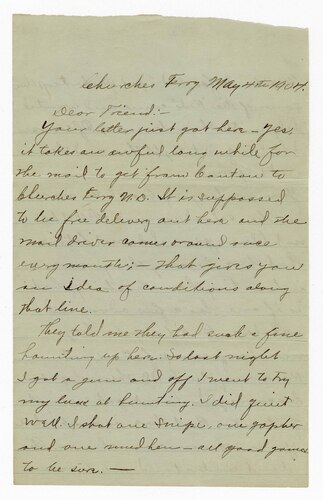 Churches Ferry May 4th 1904.
Dear Friend:-
Your letter just got here - yes,
it takes an awful long while for
the mail to get from Canton to
Churches Ferry N.D. It is supposed
to be free delivery out here and the
mail driver comes around once
every month; - that gives you
an idea of conditions along
that line.
They told me they had such a fine
haunting up here. So last night
I got a gun and off I went to try
my luck at hunting. I did quiet
well. I shot one snipe, one gopher
and one mudhen - all good game
to be sure. -